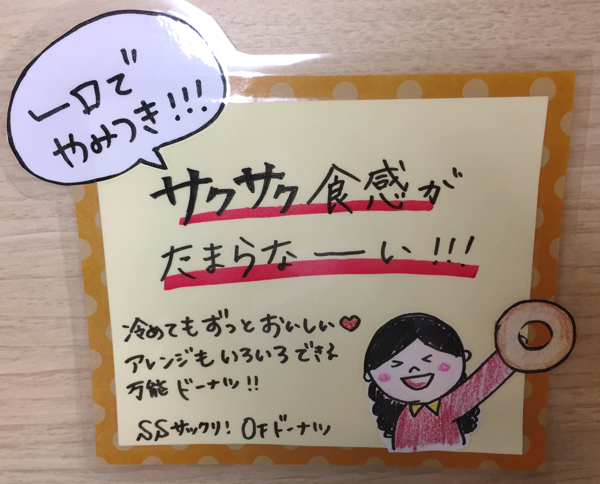 一口で
やみつき!!!
サクサク食感が
たまらなーい!!!
冷めてもずっとおいしい♥
アレンジもいろいろできる
万能ドーナツ!!
SSサックリ! OFドーナツ